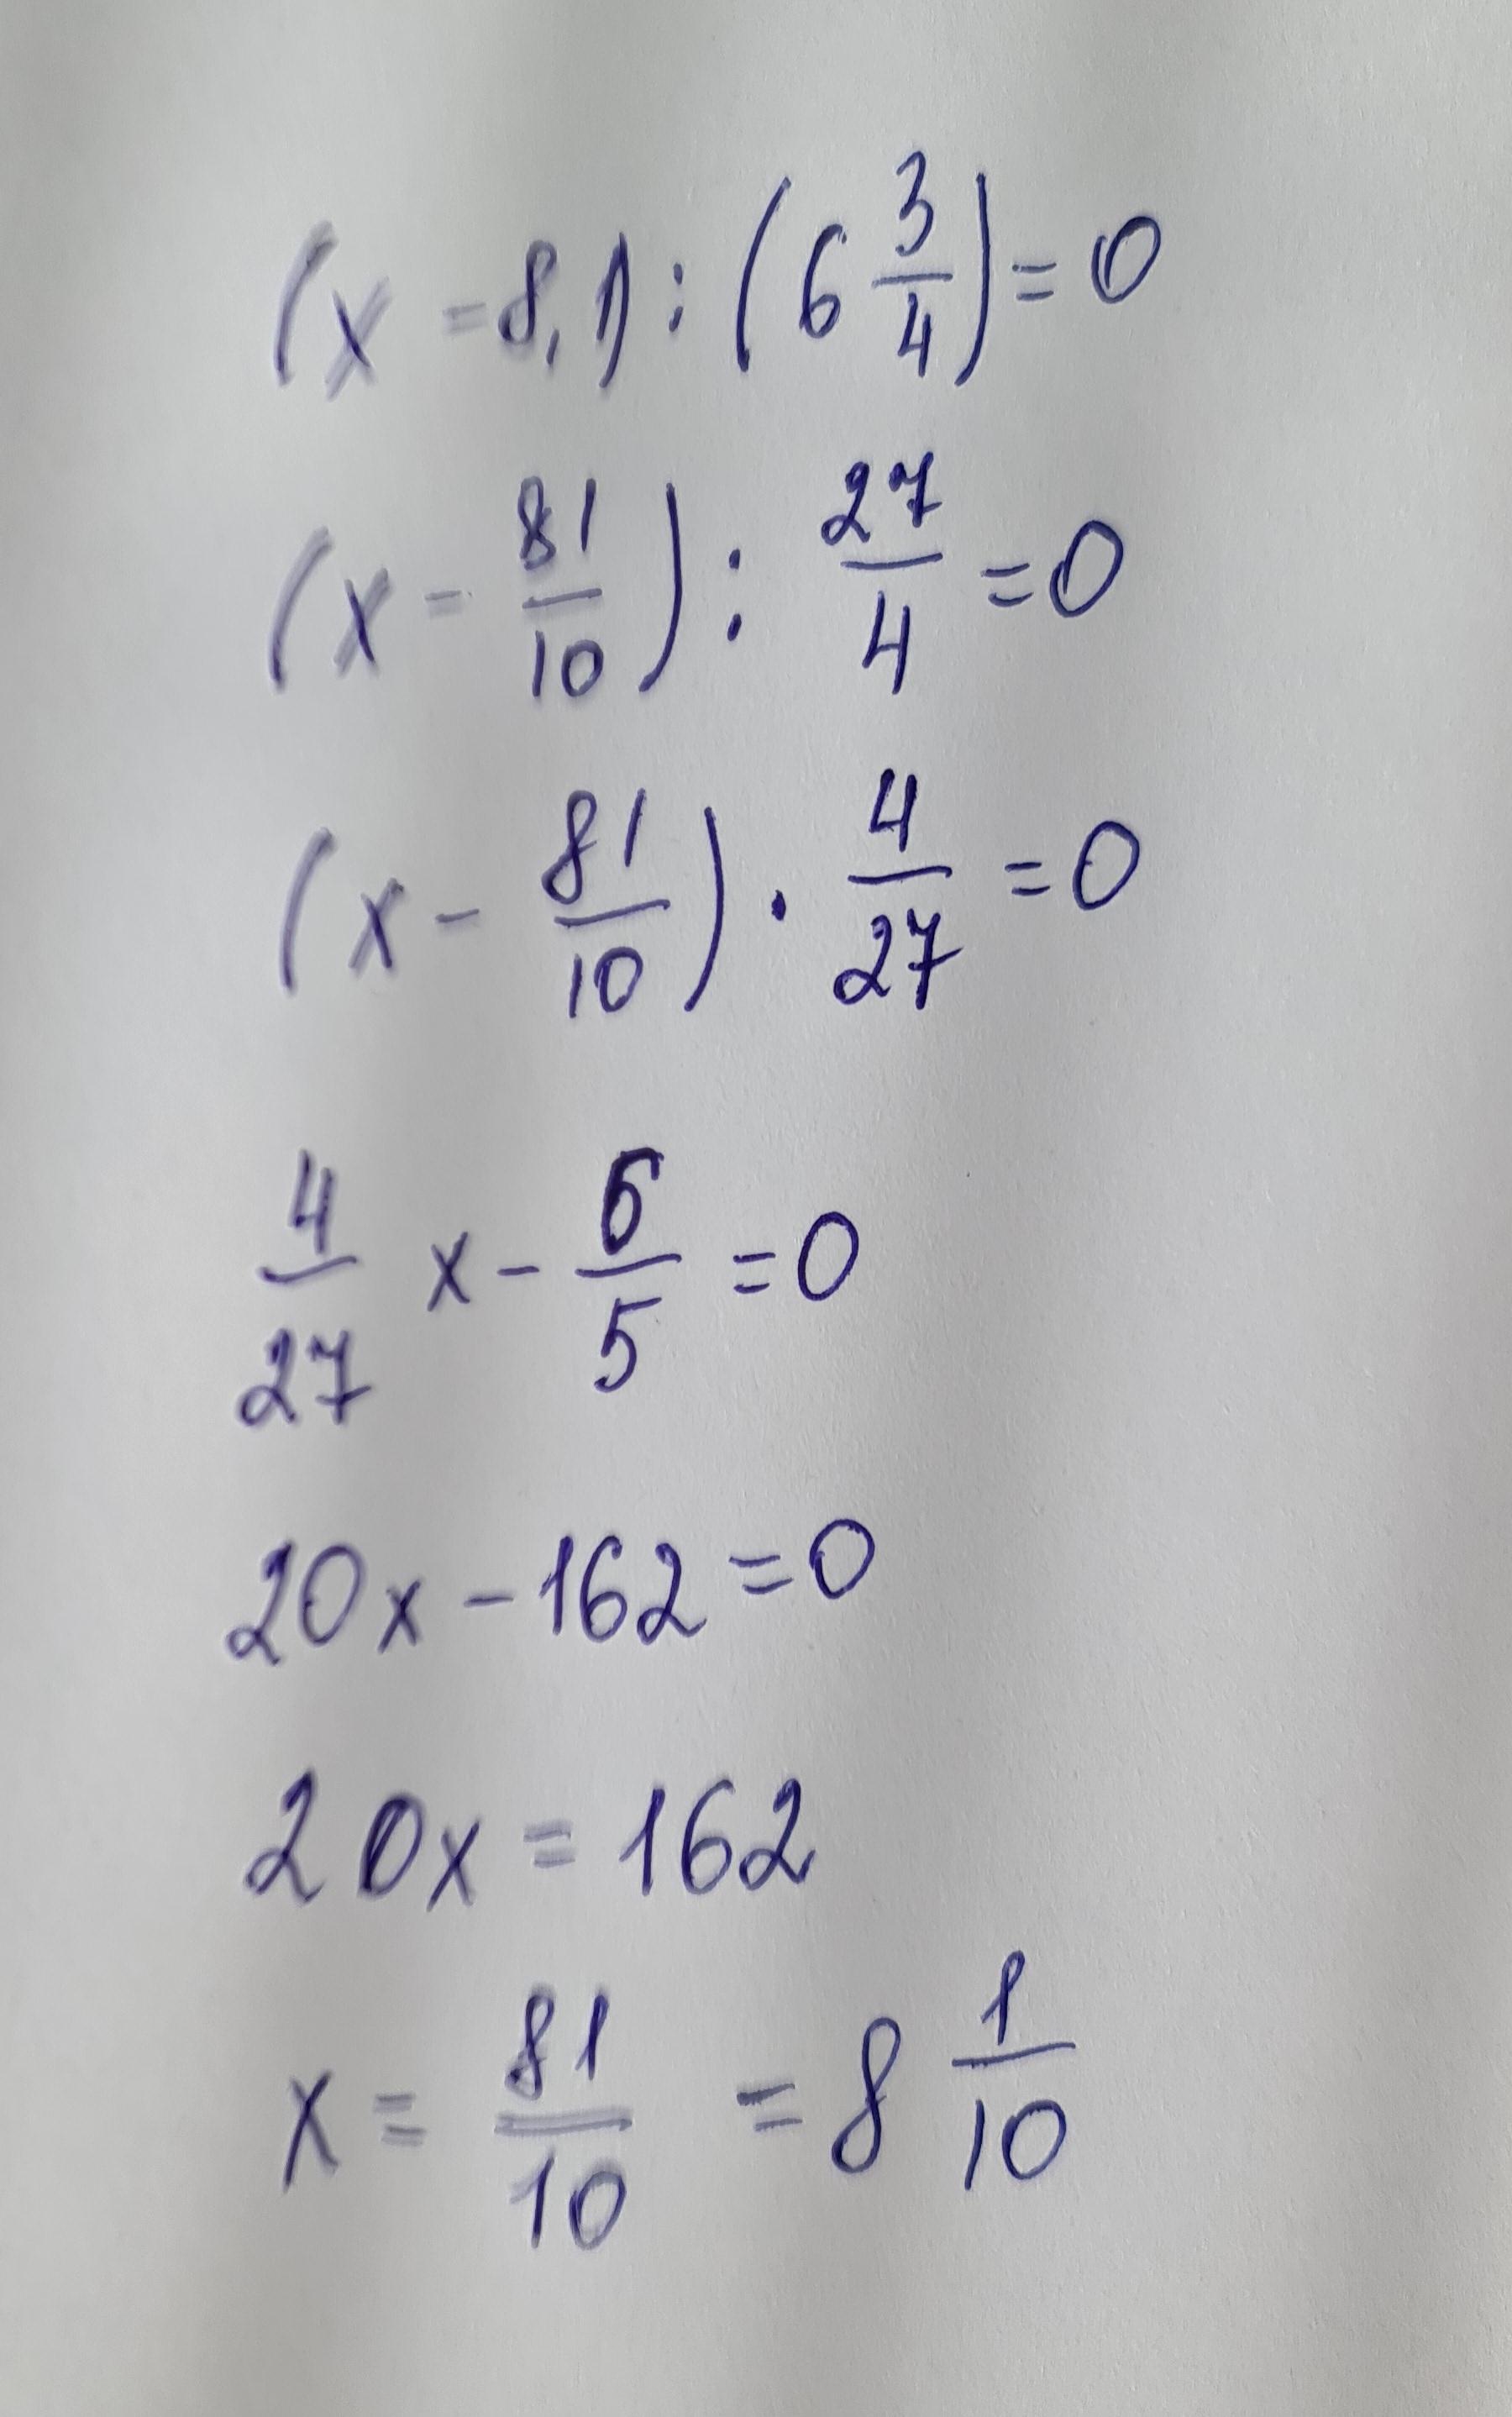 (x - 8,1) : (6 3/4) = 0
(x - 81/10) : 27/4 = 0
(x - 81/10) · 4/27 = 0
4/27 x - 6/5 = 0
20x - 162 = 0
20x = 162
x = 81/10 = 8 1/10